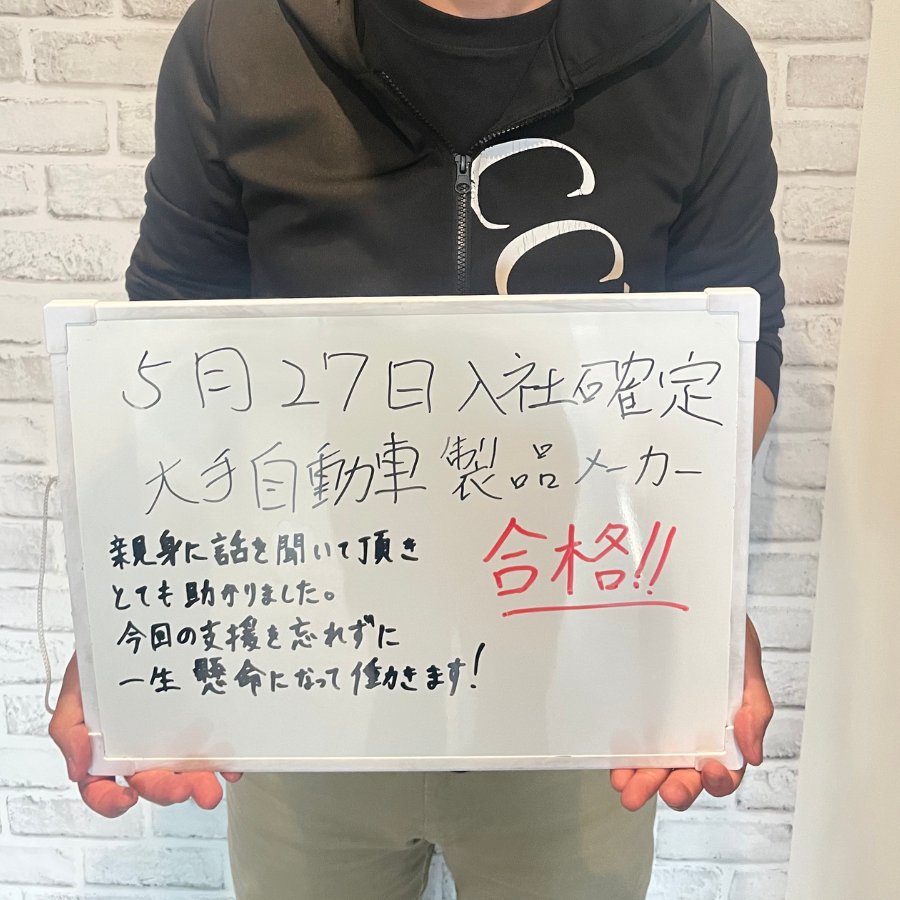 CC
5月27日入社確定
大手自動車製品メーカー
合格!!
親身に話を聞いて頂き
とても助かりました。
今回の支援を忘れずに
一生懸命になって働きます!